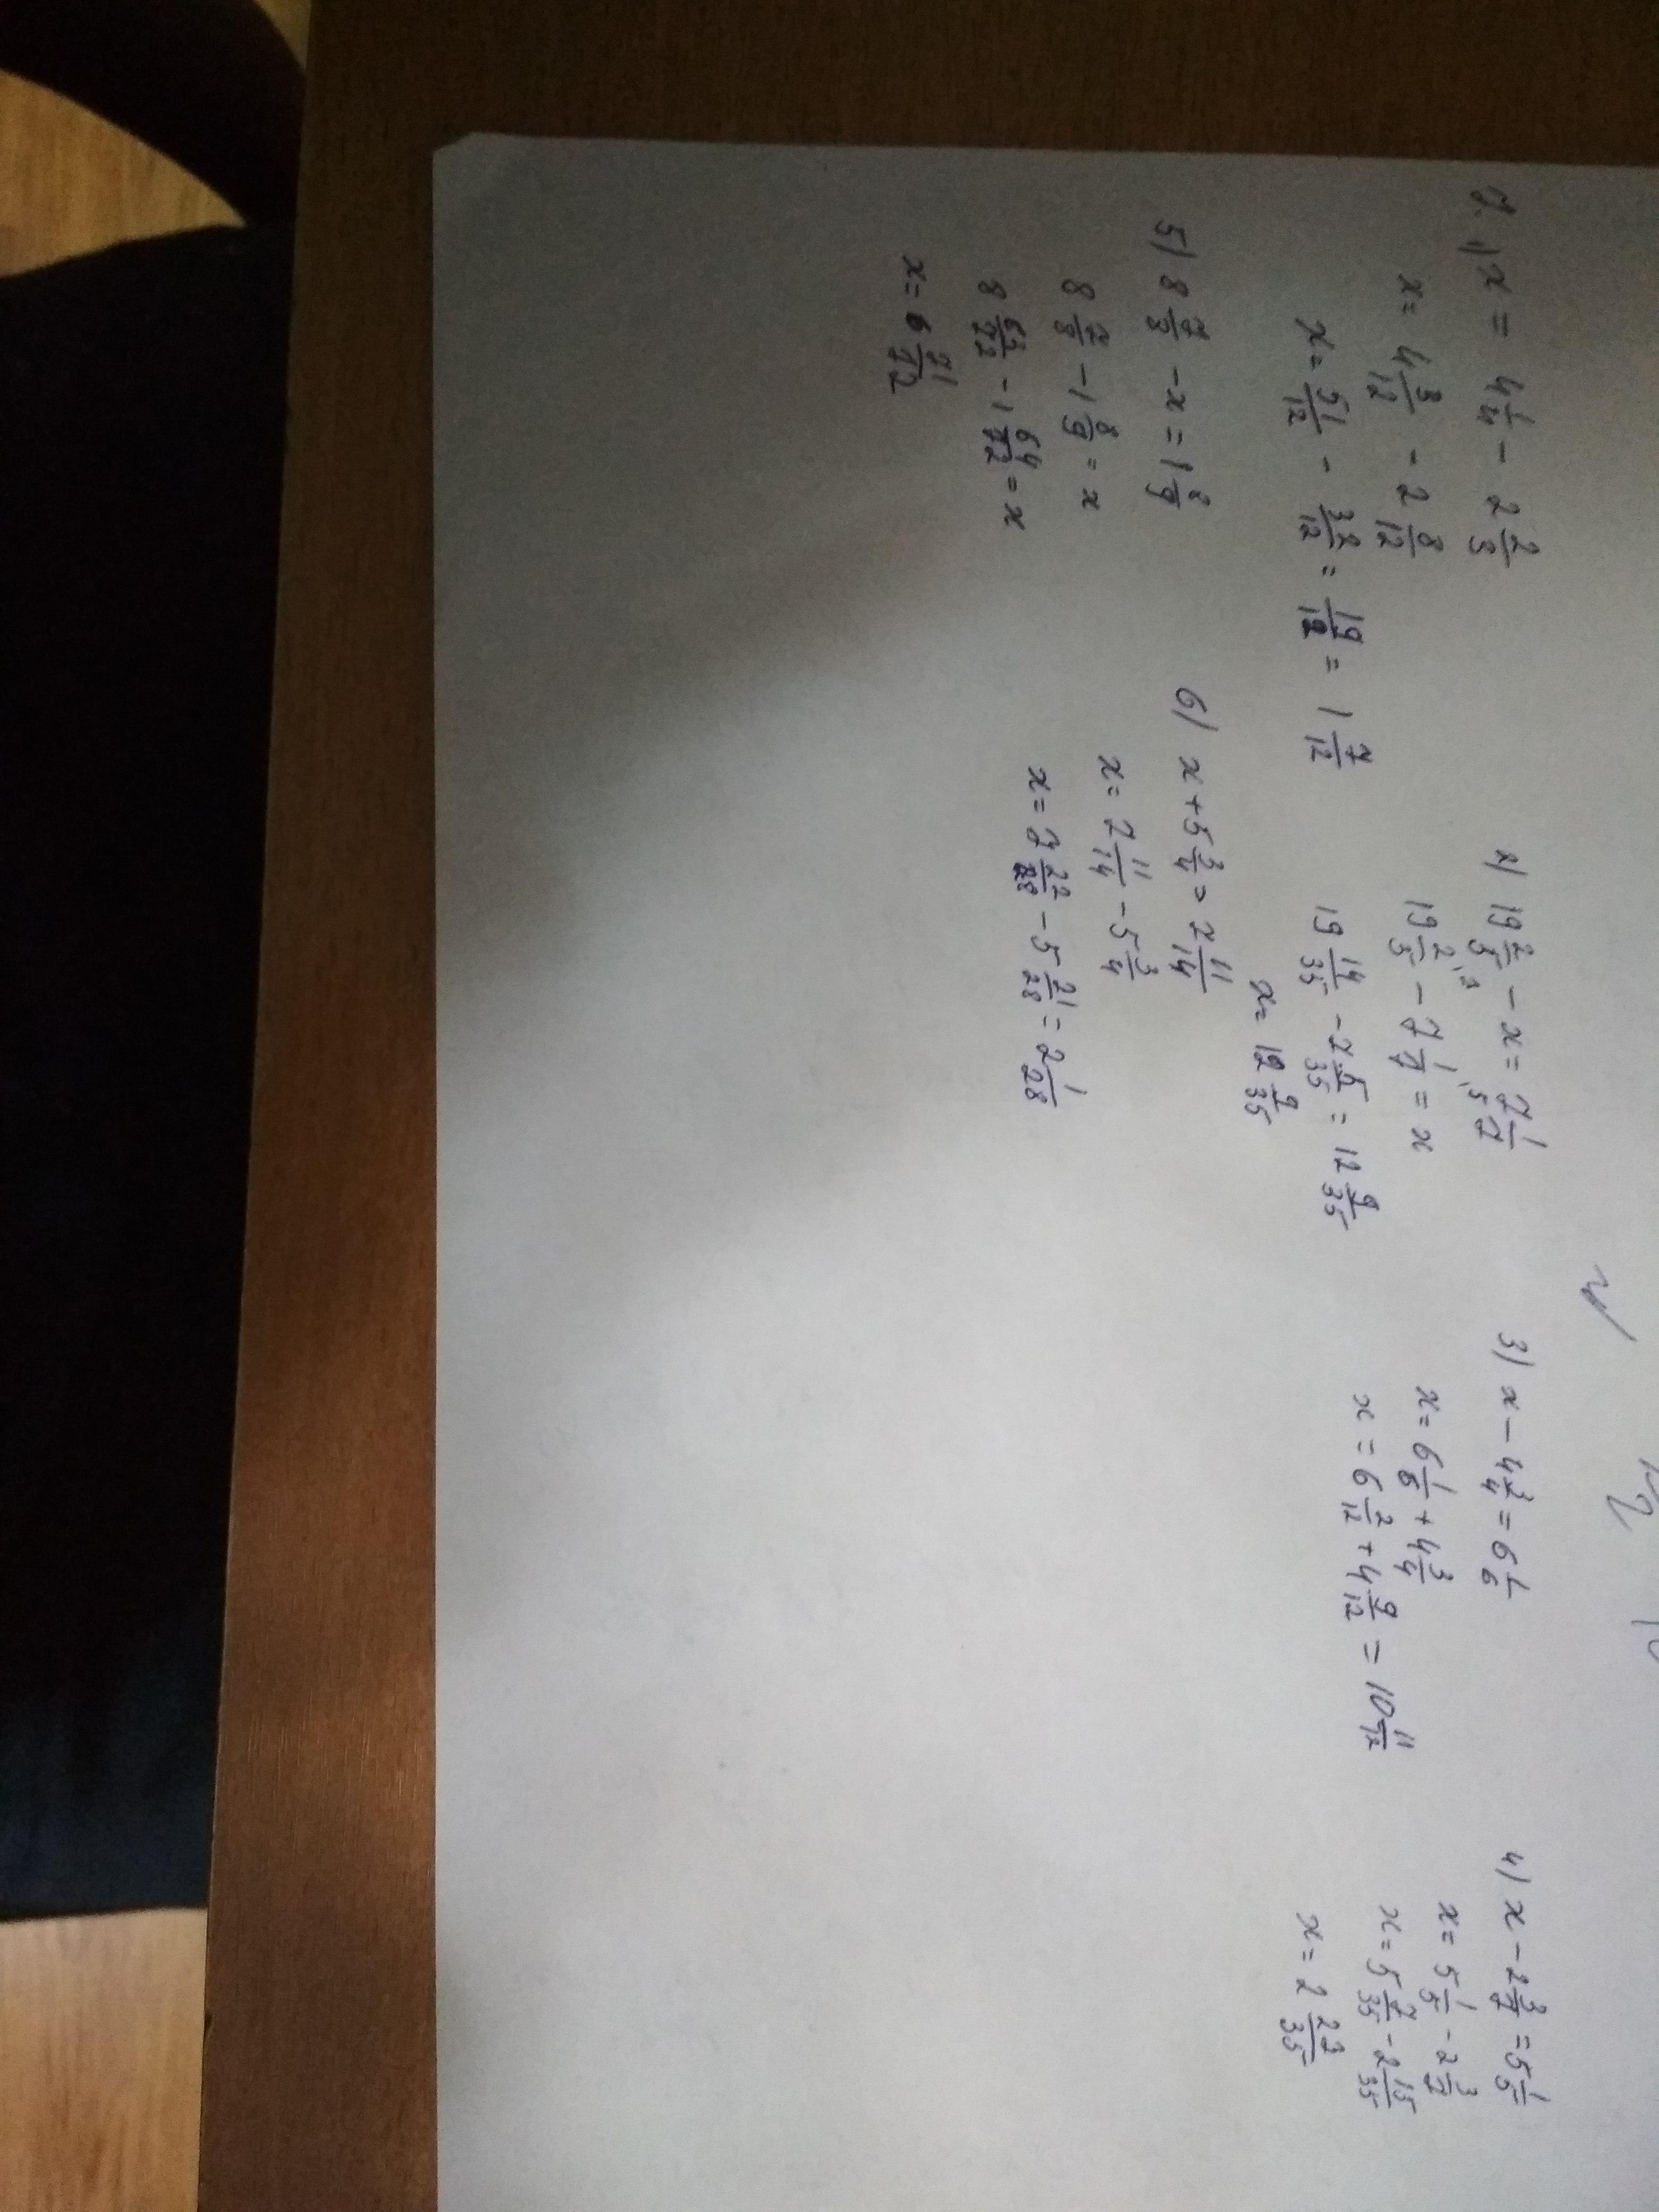 2. 1) x = 4 1/4 - 2 2/3
x = 4 3/12 - 2 8/12
x = 51/12 - 32/12 = 19/12 = 1 7/12
2) 19 2/5 - x = 7 1/7
19 2/5 - 7 1/7 = x
19 14/35 - 7 5/35 = 12 9/35
x = 12 9/35
3) x - 4 3/4 = 6 1/6
x = 6 1/6 + 4 3/4
x = 6 2/12 + 4 9/12 = 10 11/12
4) x - 2 3/7 = 5 1/5
x = 5 1/5 - 2 3/7
x = 5 7/35 - 2 15/35
x = 2 27/35
5) 8 - x = 1 8/9
8 - 1 8/9 = x
8 - 1 64/72 = x
x = 6 71/72
6) x + 5 3/4 = 7 11/14
x = 7 11/14 - 5 3/4
x = 7 22/28 - 5 21/28 = 2 1/28